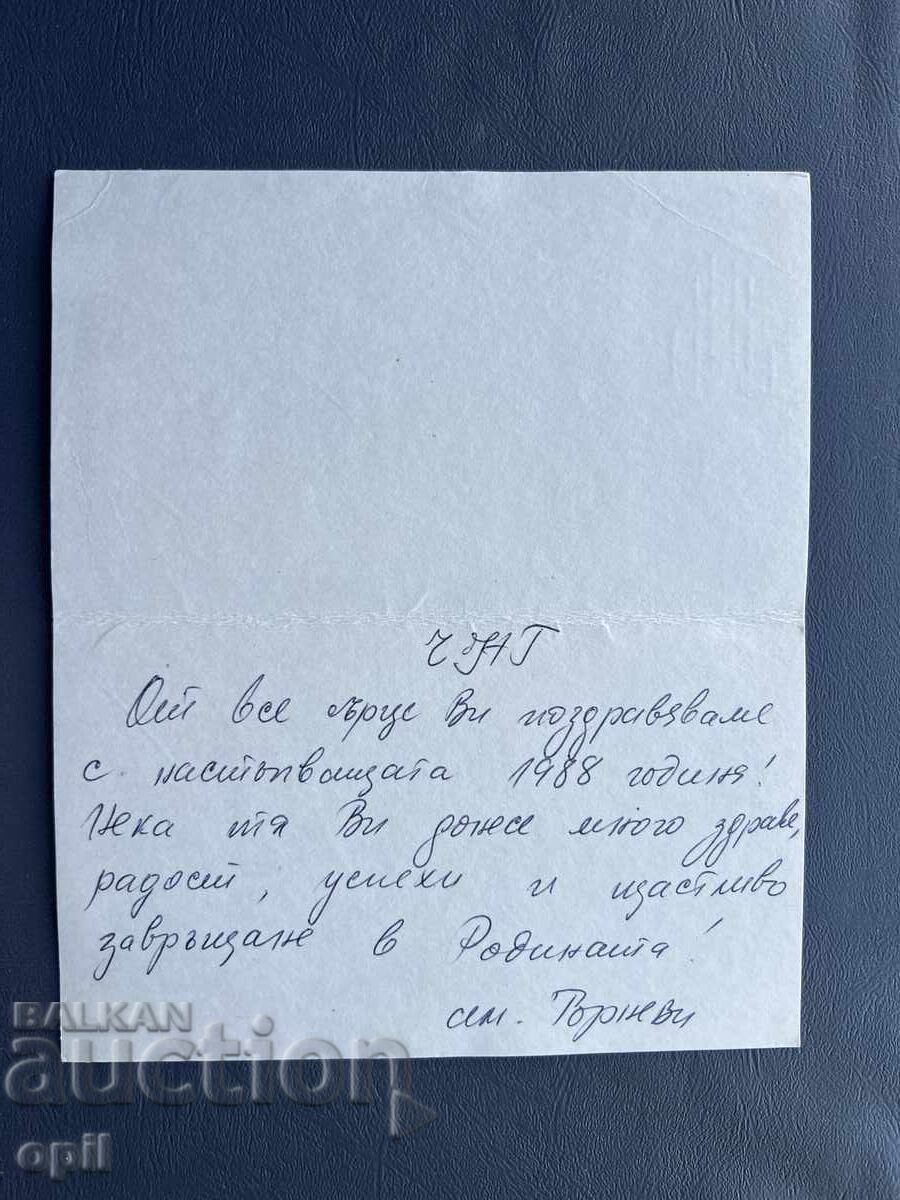 ЧНГ
От все сърце Ви поздравяваме
с настъпващата 1988 година!
Нека тя Ви донесе много здраве,
радост, успехи и щастливо
завръщане в Родината!
сем.
BALKAN
auction
opil